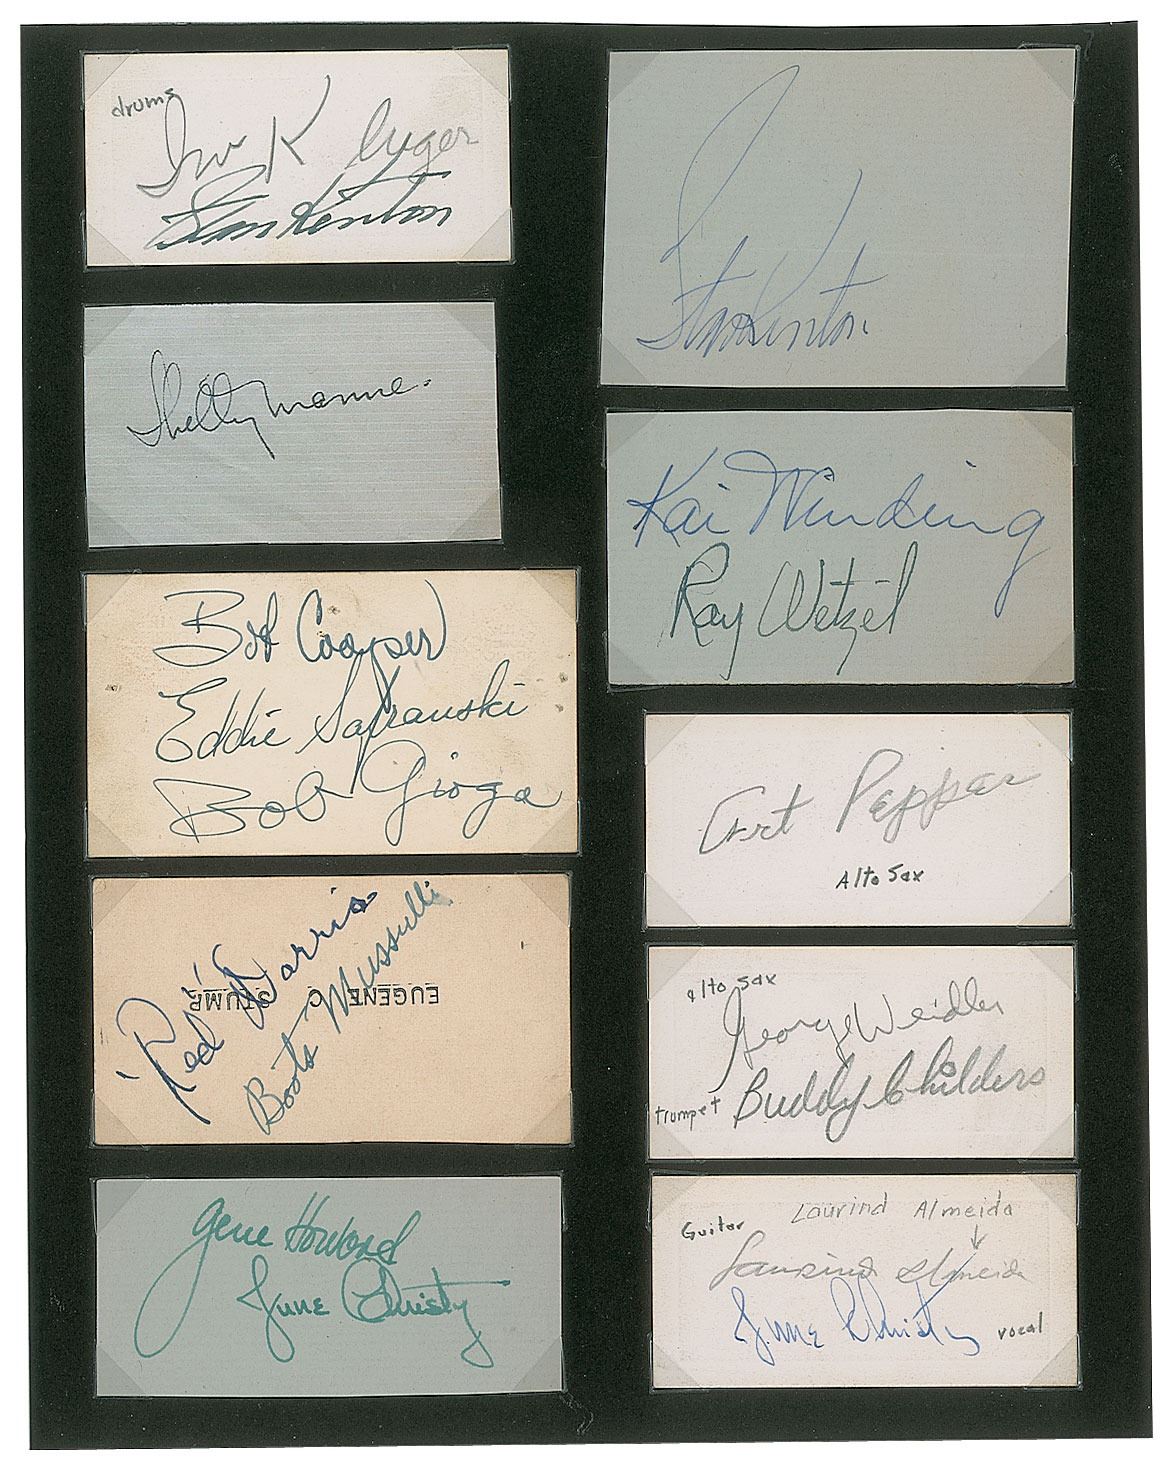 drums
Irv Kluger
Stan Kenton
Shelly Manne.
Bob Cooper
Eddie Safranski
Bob Gioga
"Red" Dorris
Boots Mussulli
EUGENE C. STUMP
Gene Howard
June Christy
Stan Kenton.
Kai Winding
Ray Wetzel
Art Pepper
Alto Sax
alto sax
George Weidler
trumpet Buddy Childers
Guitar Laurind Almeida
Laurindo Almeida
June Christy vocal